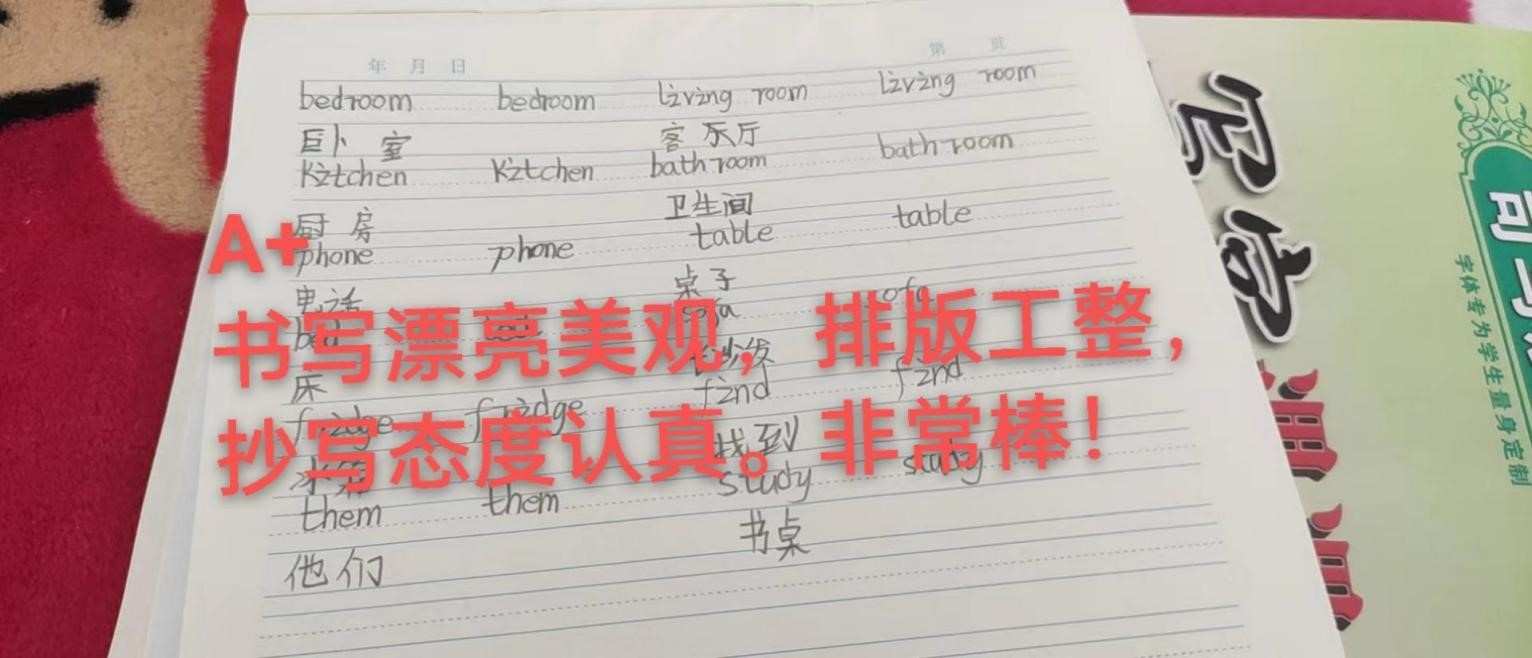 年 月 日
第 页
bedroom bedroom living room living room
卧室 客厅
kitchen kitchen bathroom bathroom
厨房 卫生间
phone phone table table
电话 桌子
bed sofa sofa
床 沙发
fridge fridge find find
找到
them them study study
他们 书桌
A+
书写漂亮美观，排版工整，
抄写态度认真。非常棒！
字体专为学生量身定制